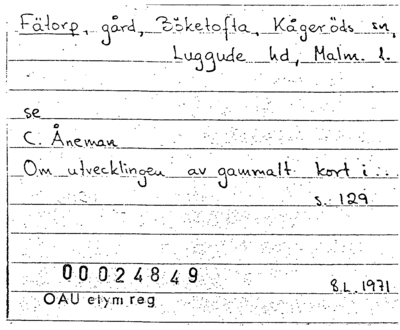 Fälorp, gård, Böketofta, Kågeröds sn,
Luggude hd, Malm. l.
se
C. Åneman
Om utvecklingen av gammalt kort i...
s. 129
00024849
8.L.1971
OAU etym reg